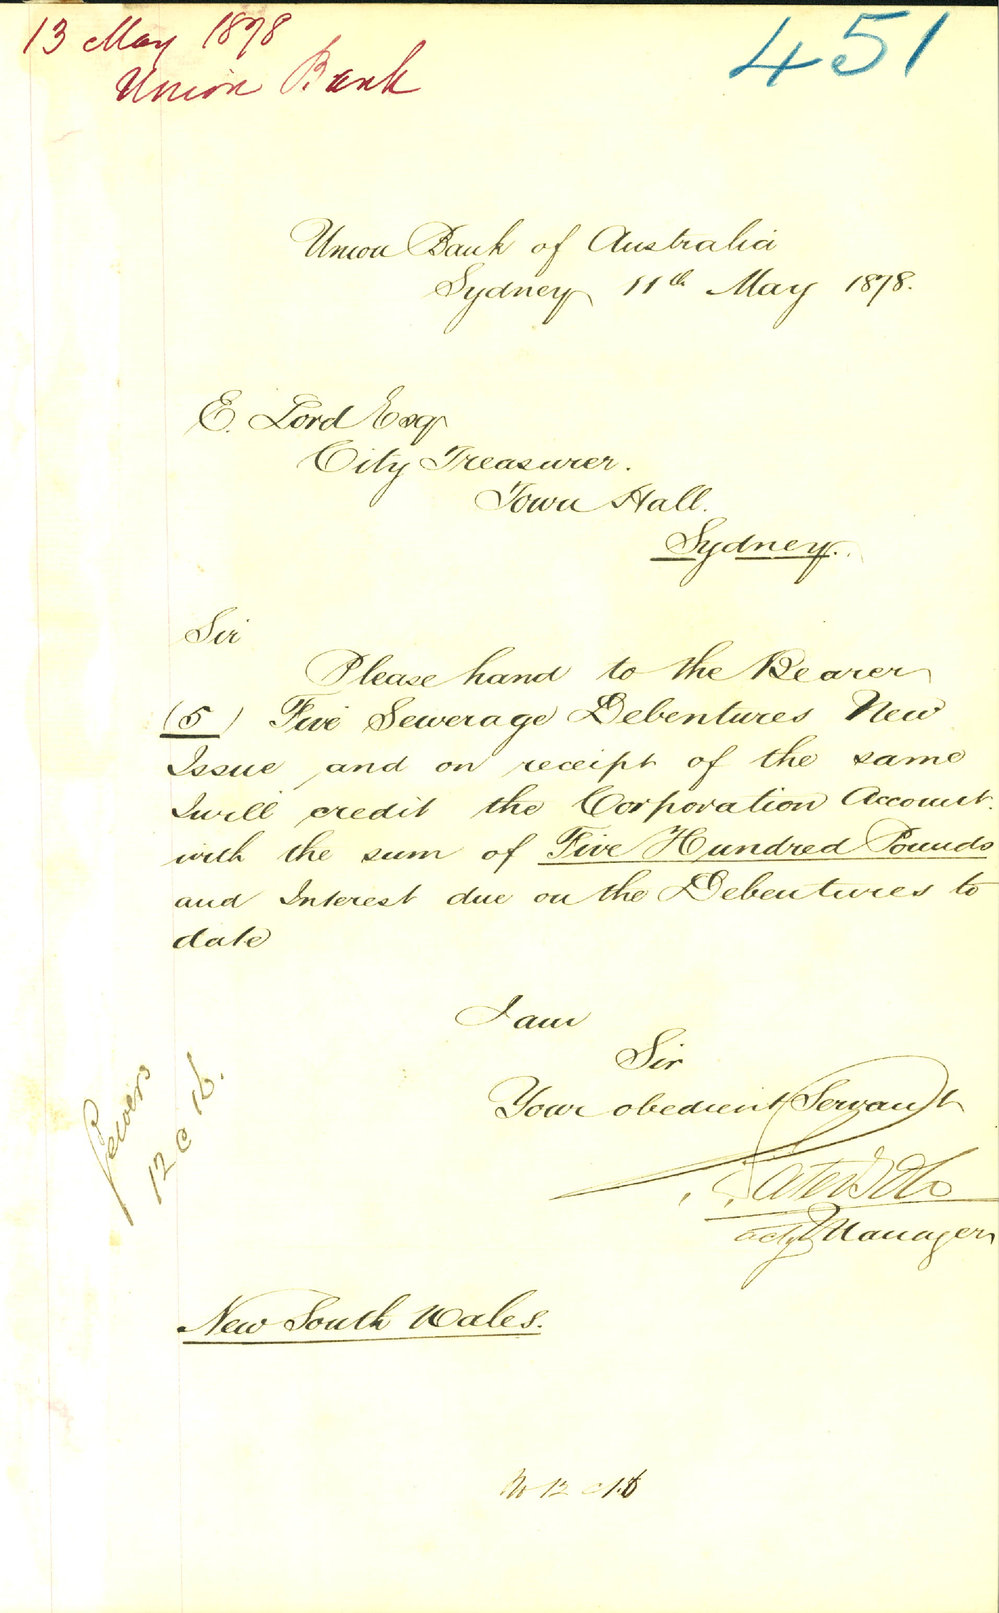 13 May 1878
Union Bank
451
Union Bank of Australia
Sydney 11th May 1878.
E. Lord Esqr
City Treasurer.
Town Hall.
Sydney.
Sir
Please hand to the Bearer
(5) Five Sewerage Debentures New
Issue and on receipt of the same
I will credit the Corporation Account.
with the sum of Five Hundred Pounds
and Interest due on the Debentures to
date
I am
Sir
Your obedient Servant
actg Manager
New South Wales.
12
12